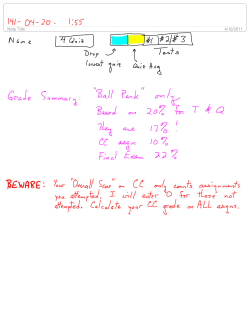 141-04-20. 1:55
Note Title
4/19/2011
Name 4 Quiz #1 #2 #3
Drop lowest quiz Quiz Avg Tests
Grade Summary: "Ball Park" only
Based on 20% for T & Q
They are 17% !
CC asgn 10%
Final Exam 22%
BEWARE: Your "Overall Score" on CC only counts assignments
you attempted. I will enter 0 for those not
attempted. Calculate your CC grade on ALL asgns.